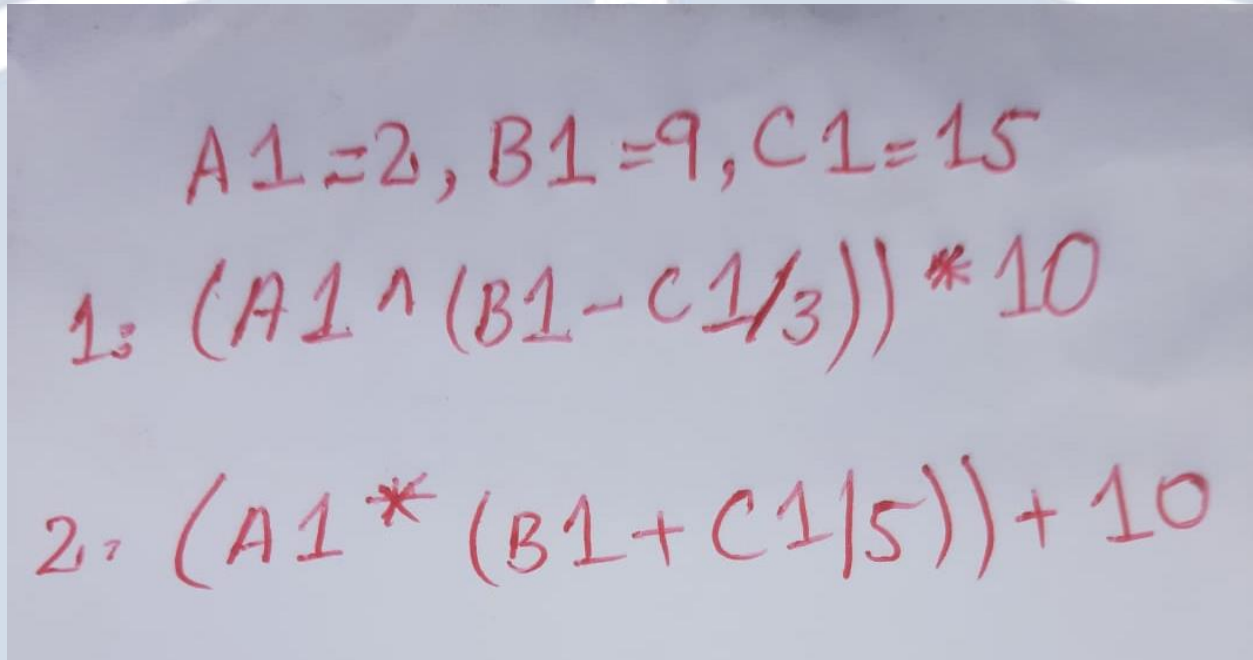 A1=2, B1=9, C1=15
1: (A1^(B1-C1/3))*10
2. (A1*(B1+C1/5))+10